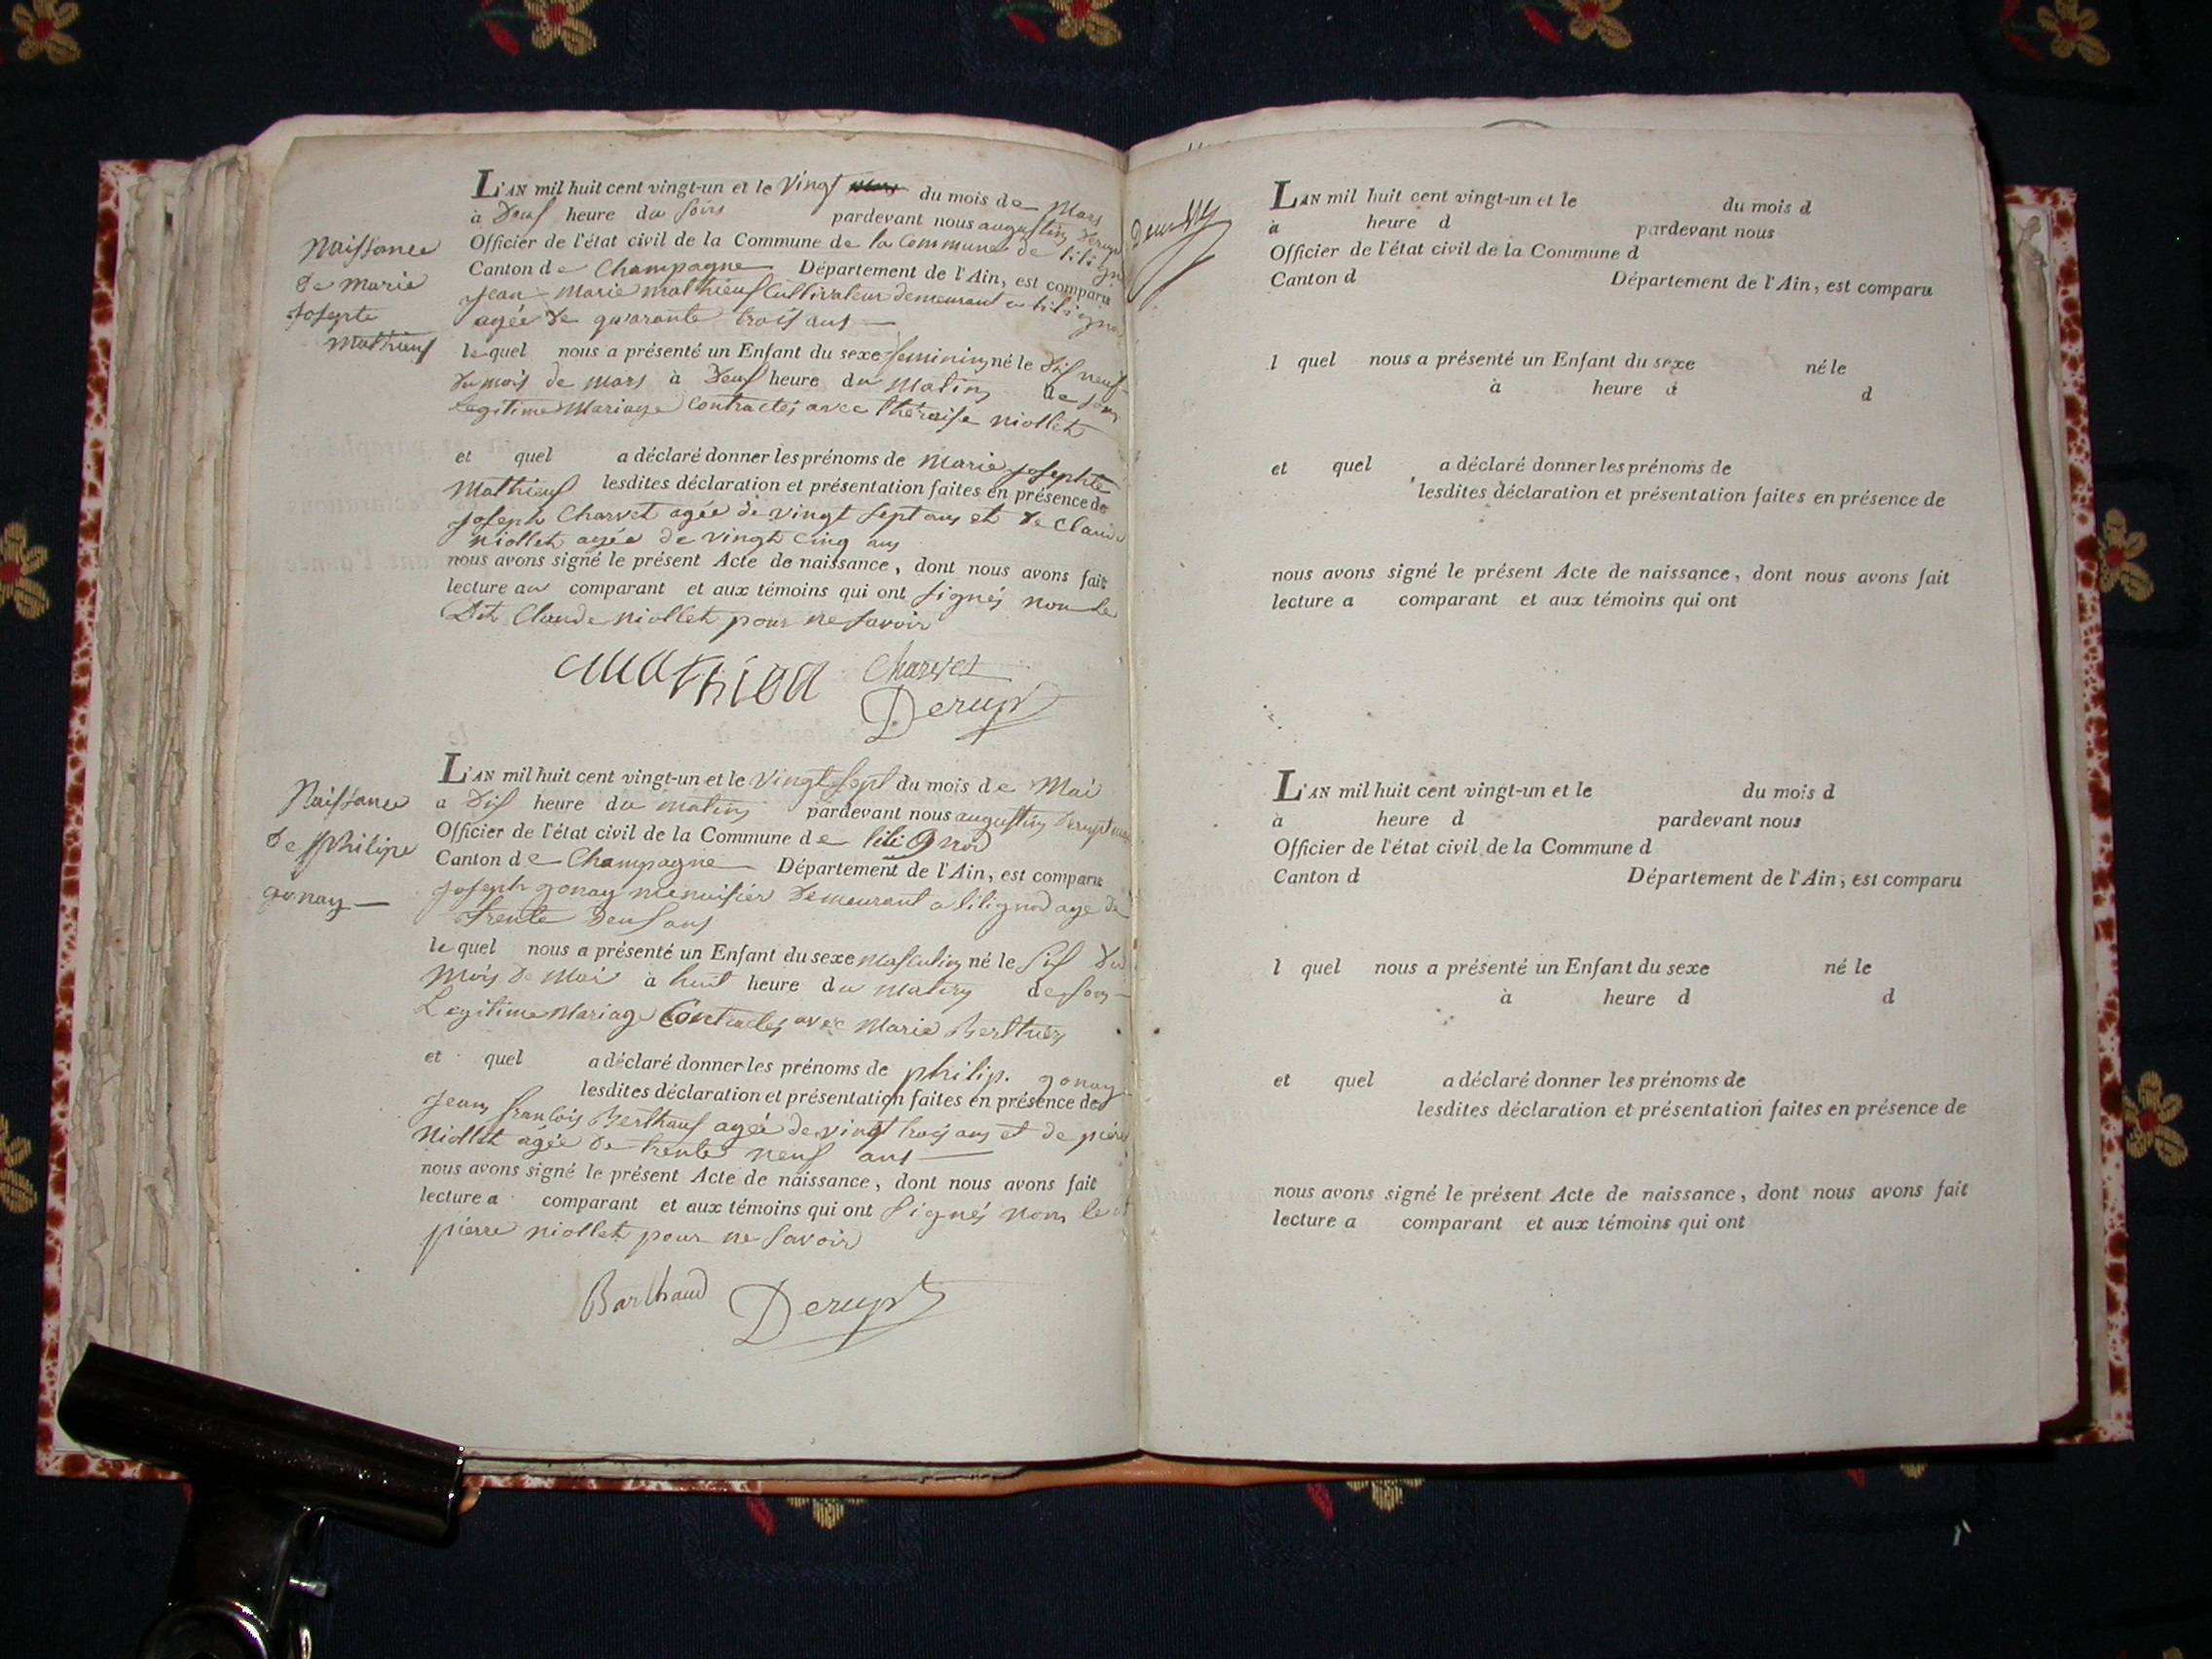 L'AN mil huit cent vingt-un et le vingt du mois de Mars
à Deuf heure du soirs pardevant nous augustin Derupt
Officier de l'état civil de la Commune de la Commune de lilignod
Canton de Champagne Département de l'Ain, est comparu
Jean-Marie Mathieuf Cultivateur demeurant a lilignod
agée de quarante trois ans
Naissance
de Marie
Josepte
Mathieuf
le quel nous a présenté un Enfant du sexe feminin né le dif neuf
du mois de mars à Deuf heure du Matin de son
legitime Mariage Contractés avec théraise niollet
et quel a déclaré donner les prénoms de Marie Josephte
Mathieuf lesdites déclaration et présentation faites en présence de
Joseph Charvet agée de vingt sept ans et de Claude
niollet agée de vingt cinq ans
nous avons signé le présent Acte de naissance, dont nous avons fait
lecture au comparant et aux témoins qui ont signés non le
Dit Claude niollet pour ne savoir
Charvet
Derupt
L'AN mil huit cent vingt-un et le vingt sept du mois de Mai
a Dif heure du matin pardevant nous augustin Derupt
Officier de l'état civil de la Commune de lilignod
Canton de Champagne Département de l'Ain, est comparu
Joseph gonay menuisier demeurant a lilignod age de
trente deuf ans
Naissance
de philipe
gonay
le quel nous a présenté un Enfant du sexe masculin né le dif du
mois de Mai à huit heure du matin de son
Legitime Mariage Contractés avec Marie Berthier
et quel a déclaré donner les prénoms de philip. gonay
lesdites déclaration et présentation faites en présence de
Jean francois Berthauf agée de vingt trois ans et de pierre
Niollet agée de trente neuf ans
nous avons signé le présent Acte de naissance, dont nous avons fait
lecture a comparant et aux témoins qui ont signés non le
pierre niollet pour ne savoir
Barthaud Derupt
LAN mil huit cent vingt-un et le du mois d
à heure d pardevant nous
Officier de l'état civil de la Commune d
Canton d Département de l'Ain, est comparu
l quel nous a présenté un Enfant du sexe né le
à heure d d
et quel a déclaré donner les prénoms de
lesdites déclaration et présentation faites en présence de
nous avons signé le présent Acte de naissance, dont nous avons fait
lecture a comparant et aux témoins qui ont
L'AN mil huit cent vingt-un et le du mois d
à heure d pardevant nous
Officier de l'état civil de la Commune d
Canton d Département de l'Ain, est comparu
l quel nous a présenté un Enfant du sexe né le
à heure d d
et quel a déclaré donner les prénoms de
lesdites déclaration et présentation faites en présence de
nous avons signé le présent Acte de naissance, dont nous avons fait
lecture a comparant et aux témoins qui ont